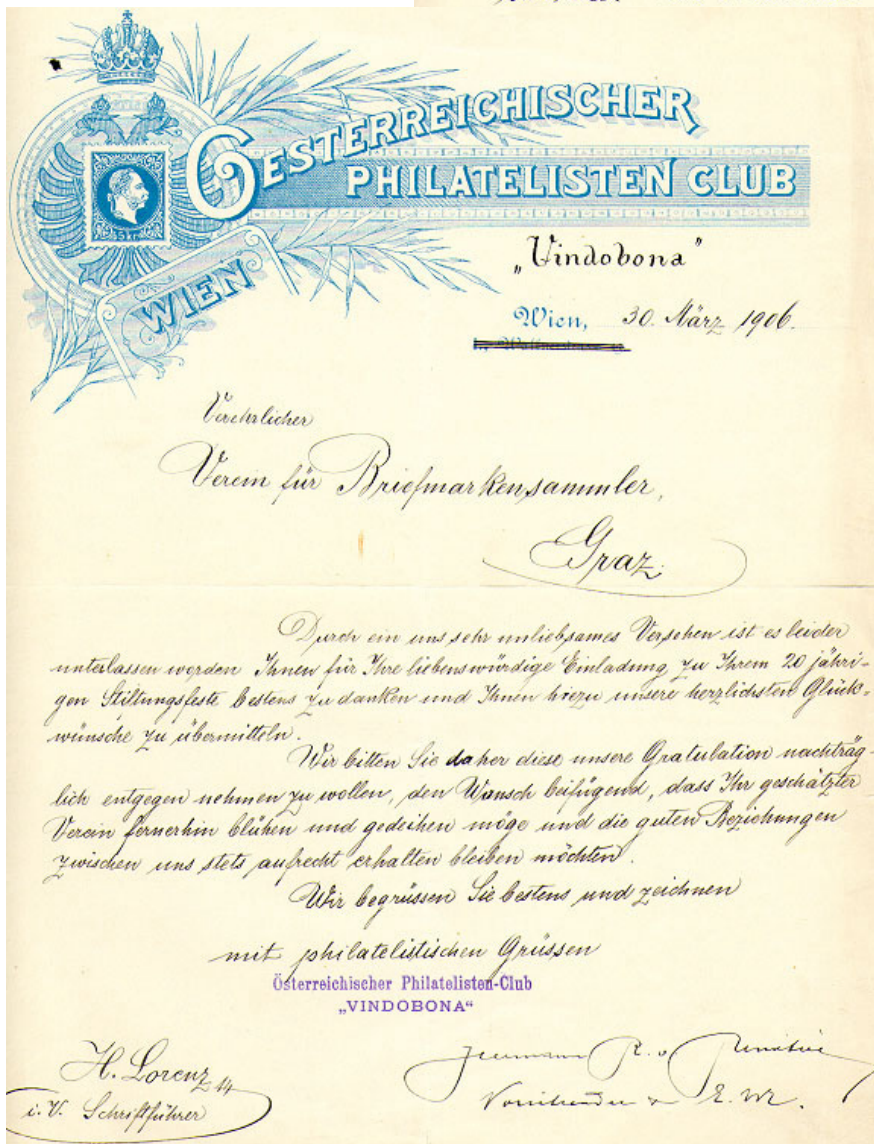 OESTERREICHISCHER
PHILATELISTEN CLUB
WIEN
„Vindobona"
Wien, 30. März 1906.
Verehrlicher
Verein für Briefmarkensammler,
Graz.
Durch ein uns sehr unliebsames Versehen ist es leider
unterlassen worden Ihnen für Ihre liebenswürdige Einladung zu Ihrem 20 jähri-
gen Stiftungsfeste bestens zu danken und Ihnen hiezu unsere herzlichsten Glück-
wünsche zu übermitteln.
Wir bitten Sie daher diese unsere Gratulation nachträg-
lich entgegen nehmen zu wollen, den Wunsch beifügend, dass Ihr geschätzter
Verein fernerhin blühen und gedeihen möge und die guten Beziehungen
zwischen uns stets aufrecht erhalten bleiben möchten.
Wir begrüssen Sie bestens und zeichnen
mit philatelistischen Grüssen
Österreichischer Philatelisten-Club
„VINDOBONA“
H. Lorenz
i. V. Schriftführer